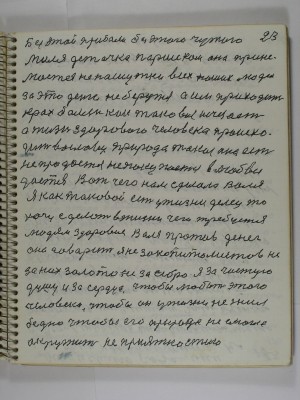 23
Без этой приболи без этого чужого
моля деточка парискои она прине
мается не по шутки всех наших людей
за это денег не берутся а им приходит
крах болькам таковые исчезает
а жизнь здорового человека происхо
дит волговец природа такая она есть
не продается не покупается в любви
дается Вот чего нам сделала Валя
Я как таковой ей у жизни делец то
хочу сделать в жизни чего требуется
людям здоровие Валя против денег
она говорит я не за капиталистов не
за них золото не за серебро. Я за чистую
душу и за сердце, чтобы любить этого
человека, чтобы он у жизни не жил
бедно чтобы его природа не смогла
окружить не приятностию